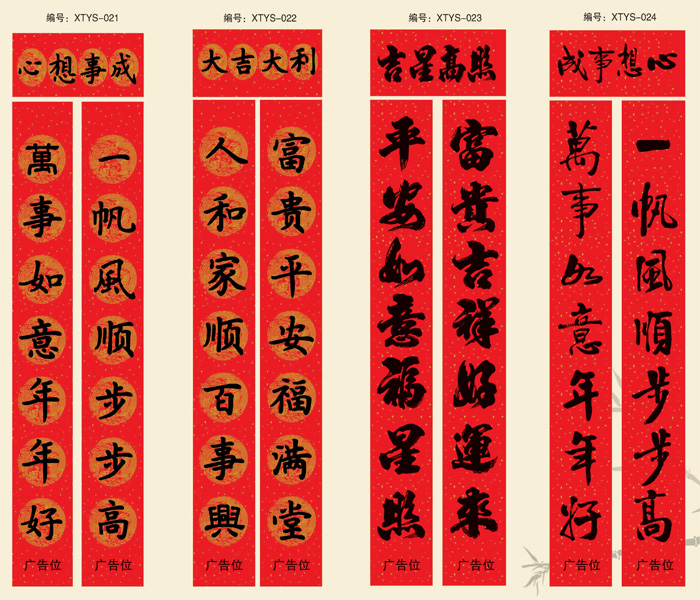 编号：XTYS-021
心想事成
一帆風顺步步高
广告位
萬事如意年年好
广告位
编号：XTYS-022
大吉大利
富贵平安福满堂
广告位
人和家顺百事興
广告位
编号：XTYS-023
吉星高照
富貴吉祥好運來
广告位
平安如意福星照
广告位
编号：XTYS-024
心想事成
一帆風順步步高
广告位
萬事如意年年好
广告位